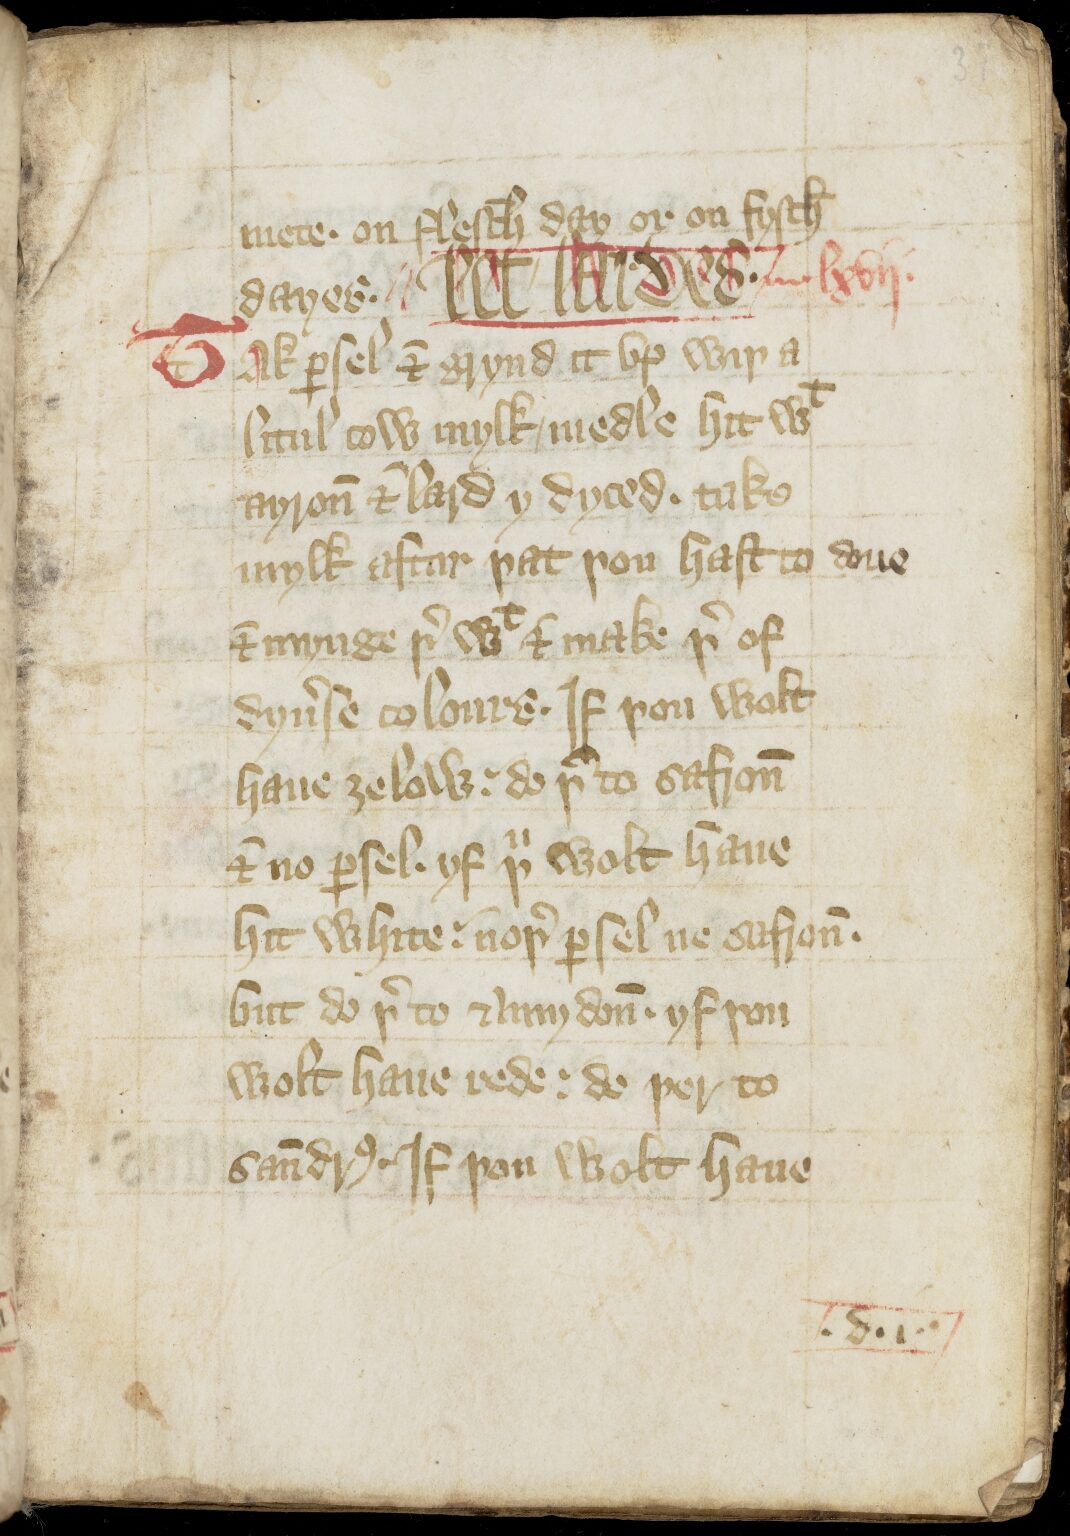 mete. on flesch day or on fysch
dayes. let lardes. lxvij.
Tak ꝑsel ⁊ grynd it vp wiþ a
litul cow mylk / medle hit wᵗ
ayron̄ ⁊ lard y dyced. take
mylk aftur þat þou hast to done
⁊ mynge þ͛ wᵗ ⁊ make þ͛ of
dyu͛se coloures. If þou wolt
haue ȝelow: do þ͛ to safron̄
⁊ no ꝑsel. yf þᵘ wolt haue
hit white: noþ͛ ꝑsel ne safron̄.
but do þ͛ to amydon̄. yf þou
wolt haue rede: do þer to
san̄drꝰ. If þou wolt haue
.d.i.